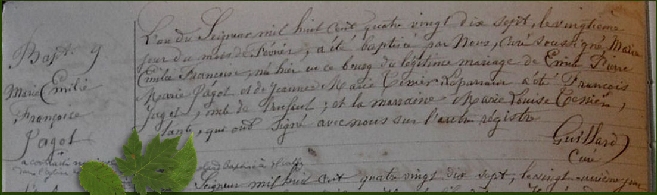 Bapt. 9
Marie Emilie
Françoise
Jagot
L'an du Seigneur mil huit cent quatre vingt dix sept, le vingtième
jour du mois de Février, a été baptisée par Nous, Curé soussigné, Marie
Emilie Françoise, née hier en ce bourg du légitime mariage de Emile Pierre
Marie Jagot et de Jeanne Marie Le parrain a été François
Jagot, oncle de l'enfant, et la marraine Marie Louise
tante, qui ont signé avec nous sur l'autre registre
Guillard
Curé
Seigneur mil huit cent quatre vingt dix sept, le vingt